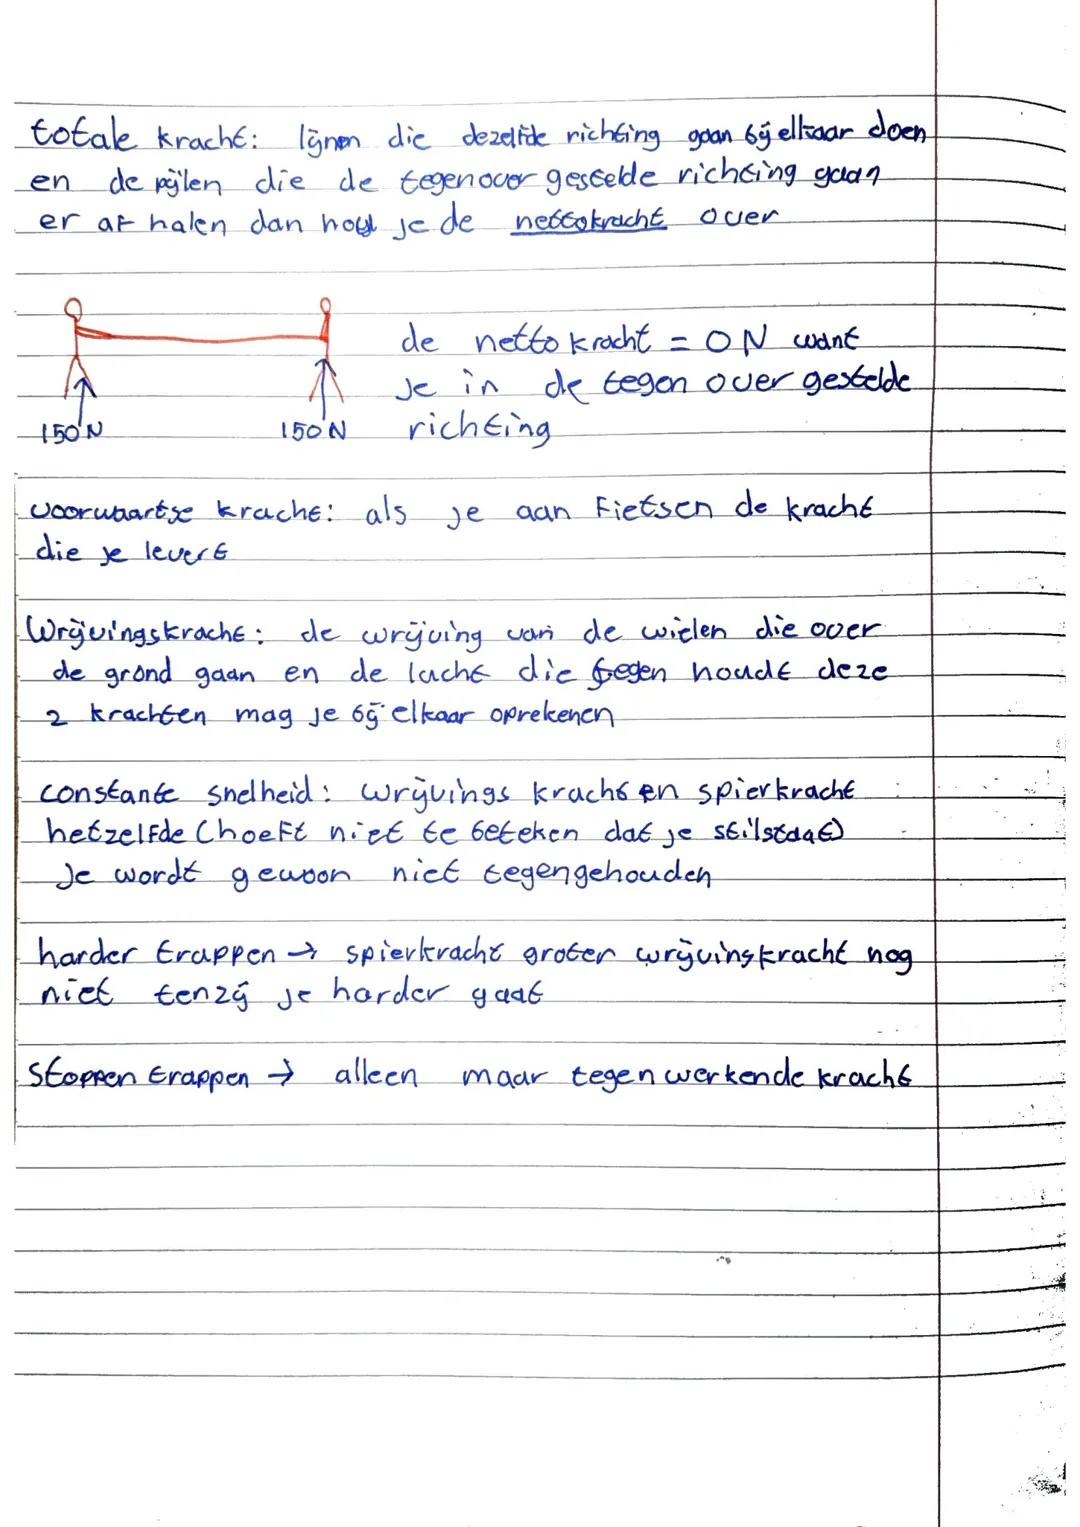 totale kracht: lijnen die dezelfde richting gaan bij elkaar doen
en de pijlen die de tegenover gestelde richting gaan
er af halen dan houd je de nettokracht over
de netto kracht = 0 N want
je in de tegen over gestelde
150 N 150 N richting
voorwaartse kracht: als je aan fietsen de kracht
die je levert
Wrijvingskracht: de wrijving van de wielen die over
de grond gaan en de lucht die tegen houdt deze
2 krachten mag je bij elkaar oprekenen
constante snelheid: wrijvings kracht en spierkracht
hetzelfde (hoeft niet te beteken dat je stilstaat)
Je wordt gewoon niet tegengehouden
harder trappen → spierkracht groter wrijvinskracht nog
niet tenzij je harder gaat
Stoppen trappen → alleen maar tegen werkende kracht